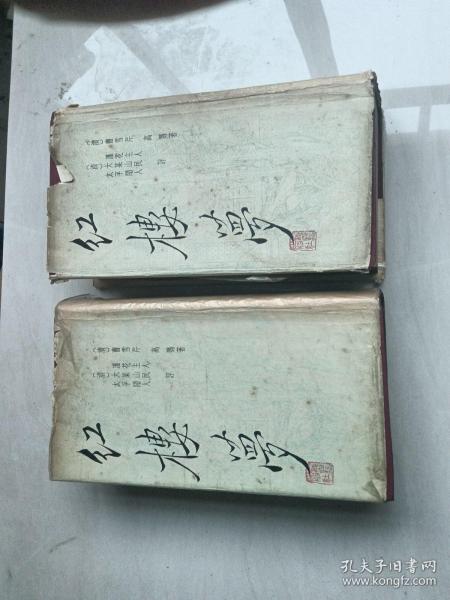 〔清〕曹雪芹 高鶚著
護花主人
〔清〕大某山民 評
太平閒人
红樓夢
〔清〕曹雪芹 高鶚著
護花主人
〔清〕大某山民 評
太平閒人
红樓夢
孔夫子旧书网
www.kongfz.com